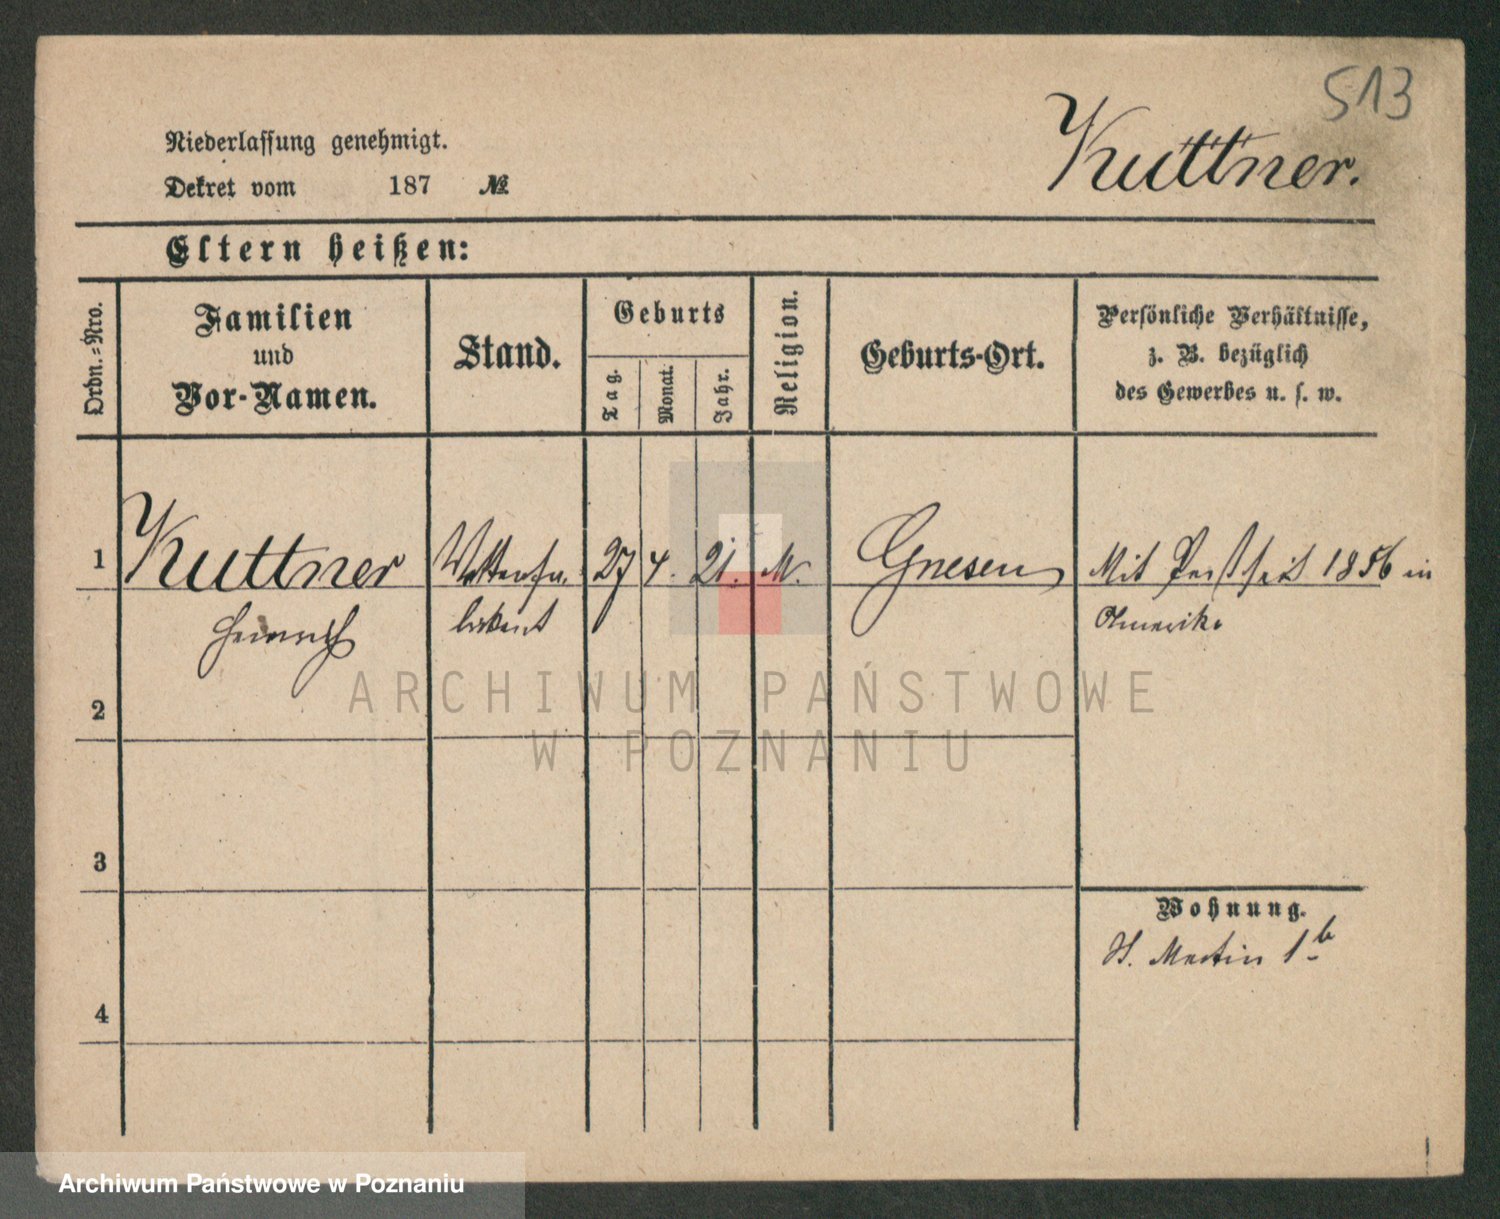 513
Niederlassung genehmigt.
Kuttner.
Dekret vom 187 №
Eltern heißen:
Ordn.-Nro.
Familien und Vor-Namen.
Stand.
Geburts
Tag.
Monat.
Jahr.
Religion.
Geburts-Ort.
Persönliche Verhältnisse,
z. B. bezüglich
des Gewerbes u. s. w.
1 Kuttner 27 4. 21. M. Gnesen Mit seit 1856 in
Heinrich Amerika
2
3
Wohnung.
St. Martin 1b
4
ARCHIWUM PAŃSTWOWE
W POZNANIU
Archiwum Państwowe w Poznaniu